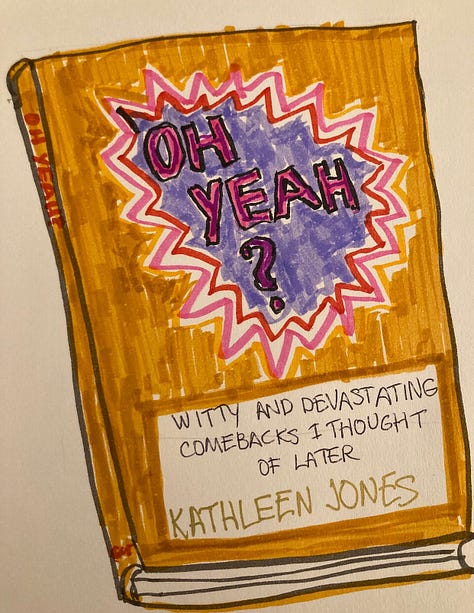 OH YEAH?
OH
YEAH
?
WITTY AND DEVASTATING
COMEBACKS I THOUGHT
OF LATER
KATHLEEN JONES